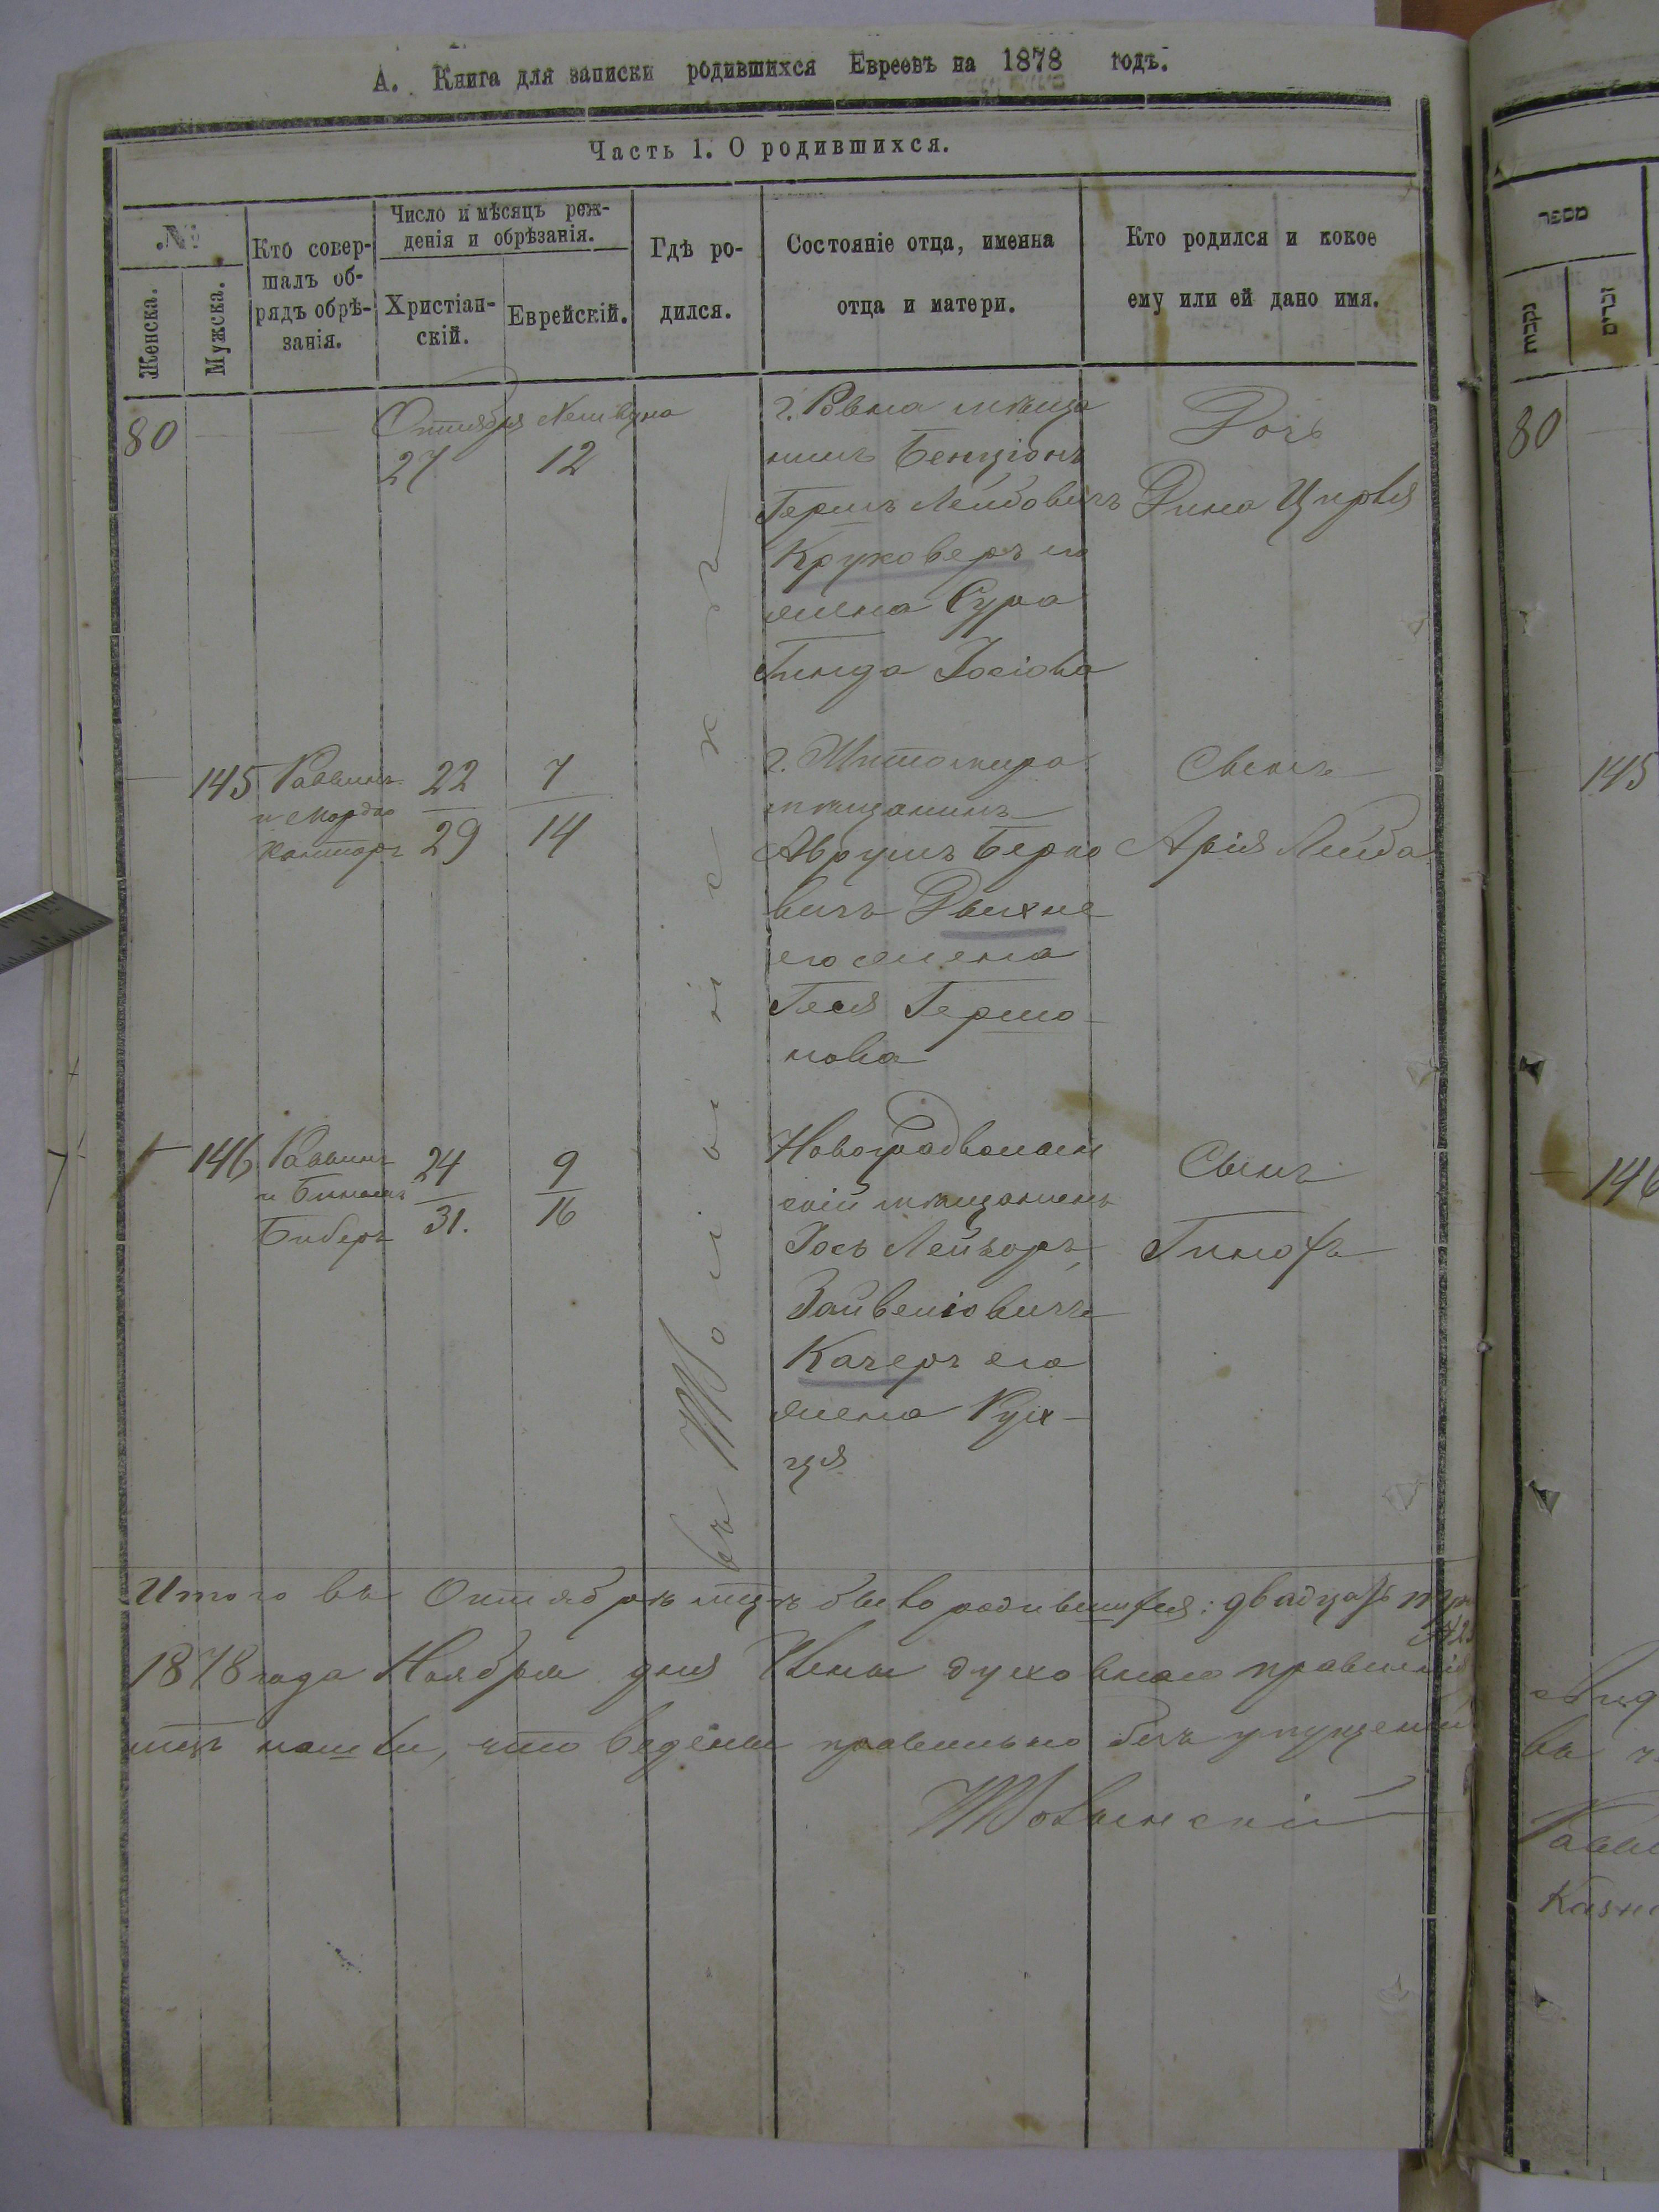 А. Книга для записки родившихся Евреевъ на 1878 годъ.
Часть 1. О родившихся.
№
Женска.
Мужска.
Кто совер-
шалъ об-
рядъ обрѣ-
занія.
Число и мѣсяцъ рож-
денія и обрѣзанія.
Христіан-
скій.
Еврейскій.
Гдѣ ро-
дился.
Состояніе отца, именна
отца и матери.
Кто родился и кокое
ему или ей дано имя.
80
Октября
27
12
г. Ровна мѣща
нинъ Бенціонъ
Гершъ Лейбовичъ
Круковеръ его
жена Сура
Гинда Іосіова
Дочь
Дина Цирля
145
Раввинъ
и Мордко
Канторъ
22
29
7
14
г. Житомира
мѣщанинъ
Аврумъ Берко
вичъ Дыхне
его жена
Геся Гершо-
нова
Сынъ
Арія Лейба
146
Раввинъ
и
Биберъ
24
31.
9
16
Новоградволын
скій мѣщанинъ
Іось
Качеръ его
жена Рух-
ця
Сынъ
въ
Итого въ Октябрѣ мцѣ было родившихся: двадцать
1878 года Ноября дня Члены духовнаго правленія
нашли, что ведены правильно безъ упущеній
מספר
נקבות
זכרים
80
145
146